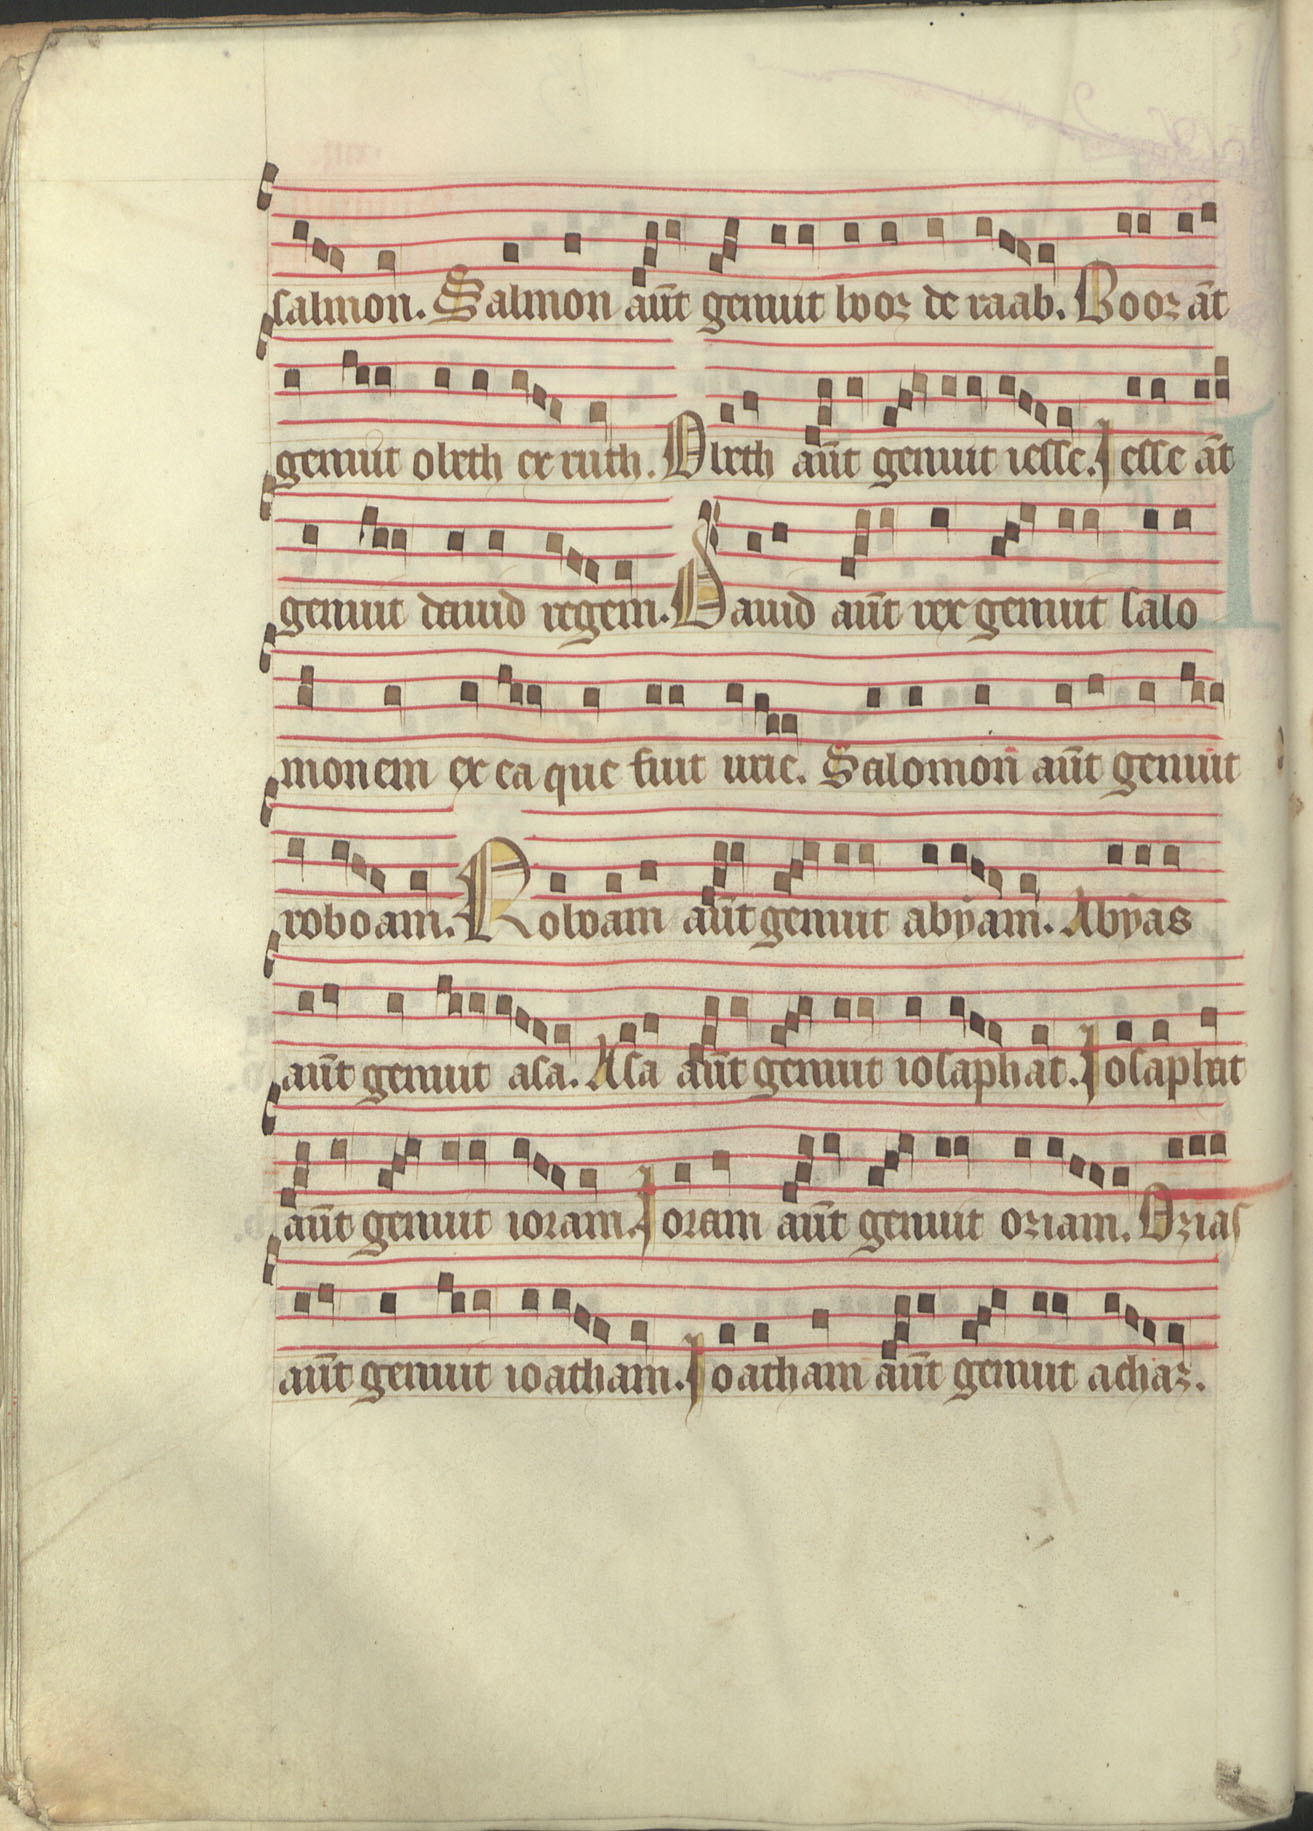 salmon. Salmon aūt genuit booz de raab. Booz āt
genuit obeth ex ruth. Obeth aūt genuit iesse. Iesse āt
genuit dauid regem. Dauid aūt rex genuit salo
monem ex ea que fuit urie. Salomon aūt genuit
roboam. Roboam aūt genuit abyam. Abyas
aūt genuit asa. Asa aūt genuit iosaphat. Iosaphat
aūt genuit ioram. Ioram aūt genuit oziam. Ozias
aūt genuit ioatham. Ioatham aūt genuit achaz.